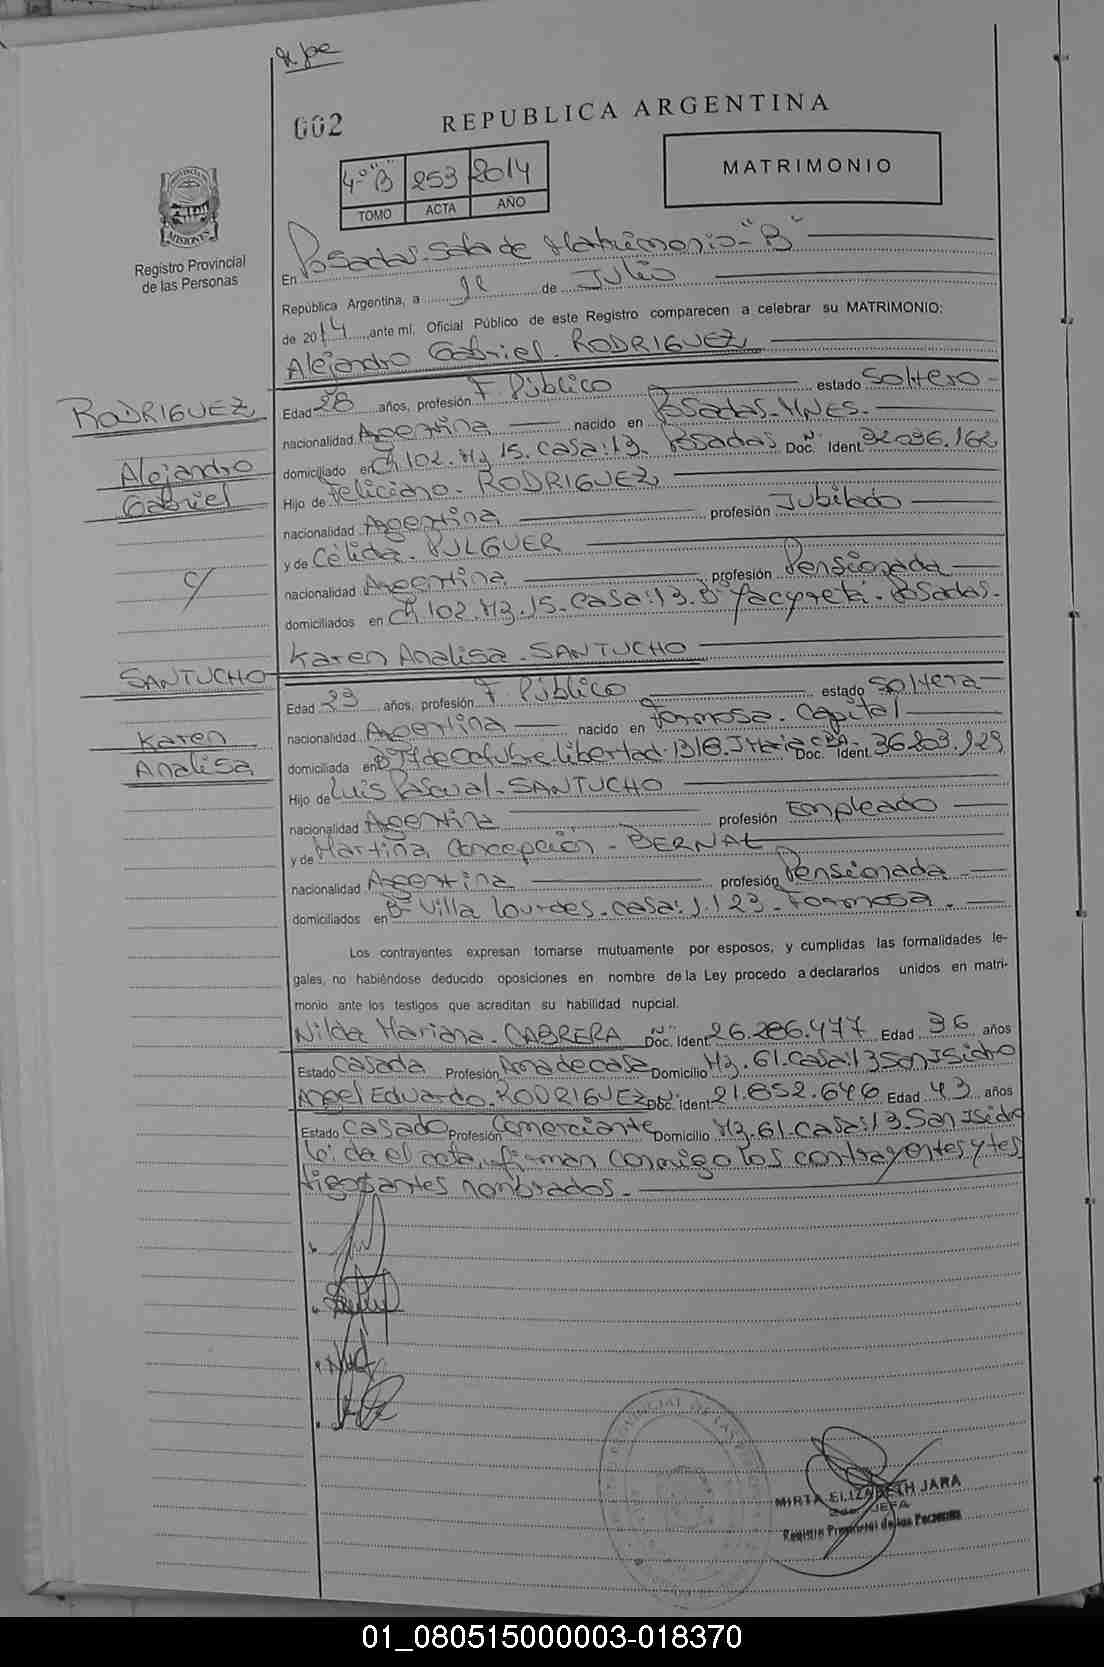 002
REPUBLICA ARGENTINA
MATRIMONIO
4º "B" 253 2014
TOMO ACTA AÑO
PROVINCIA DE MISIONES
Registro Provincial
de las Personas
En Posadas-Sala de Matrimonio-"B"
República Argentina, a de Julio
de 2014, ante mí, Oficial Público de este Registro comparecen a celebrar su MATRIMONIO:
Alejandro Gabriel. RODRIGUEZ
RODRIGUEZ
Alejandro
Gabriel
c/
SANTUCHO
Karen
Analisa
Edad 28 años, profesión F. Público estado Soltero-
nacionalidad Argentina nacido en Posadas-MNES.
domiciliado en Ch 102. Mz 15. Casa:13. Posadas Doc. Nº Ident 32.036.162
Hijo de Feliciano. RODRIGUEZ
nacionalidad Argentina profesión Jubilado
y de Célida. PULGUER
nacionalidad Argentina profesión Pensionada
domiciliados en Ch 102. Mz. 15. Casa:13. Bº Yacyretá. Posadas.
Karen Analisa. SANTUCHO
Edad 23 años, profesión F. Público estado Soltera
nacionalidad Argentina nacido en Formosa. Capital
domiciliada en Bº 17 de Octubre. Libertad. Doc. Ident. 36.203.929
Hijo de Luis Pascual. SANTUCHO
nacionalidad Argentina profesión Empleado
y de Martina Concepción - BERNAL
nacionalidad Argentina profesión Pensionada
domiciliados en Bº Villa Lourdes. Casa: 123. Formosa.
Los contrayentes expresan tomarse mutuamente por esposos, y cumplidas las formalidades le-
gales, no habiéndose deducido oposiciones en nombre de la Ley procedo a declararlos unidos en matri-
monio ante los testigos que acreditan su habilidad nupcial.
Nilda Mariana. CABRERA Doc. Nº Ident 26.286.477 Edad 36 años
Estado Casada Profesión Ama de casa Domicilio Mz. 61. Casa:13 San Isidro
Angel Eduardo. RODRIGUEZ Doc. Nº Ident 21.852.646 Edad 43 años
Estado Casado Profesión Comerciante Domicilio Mz. 61. Casa:13. San Isidro
leida el acta, firman conmigo los contrayentes y tes
tigos antes nombrados.
MIRTA ELIZABETH JARA
2da. JEFA
Registro Provincial de las Personas
01_080515000003-018370